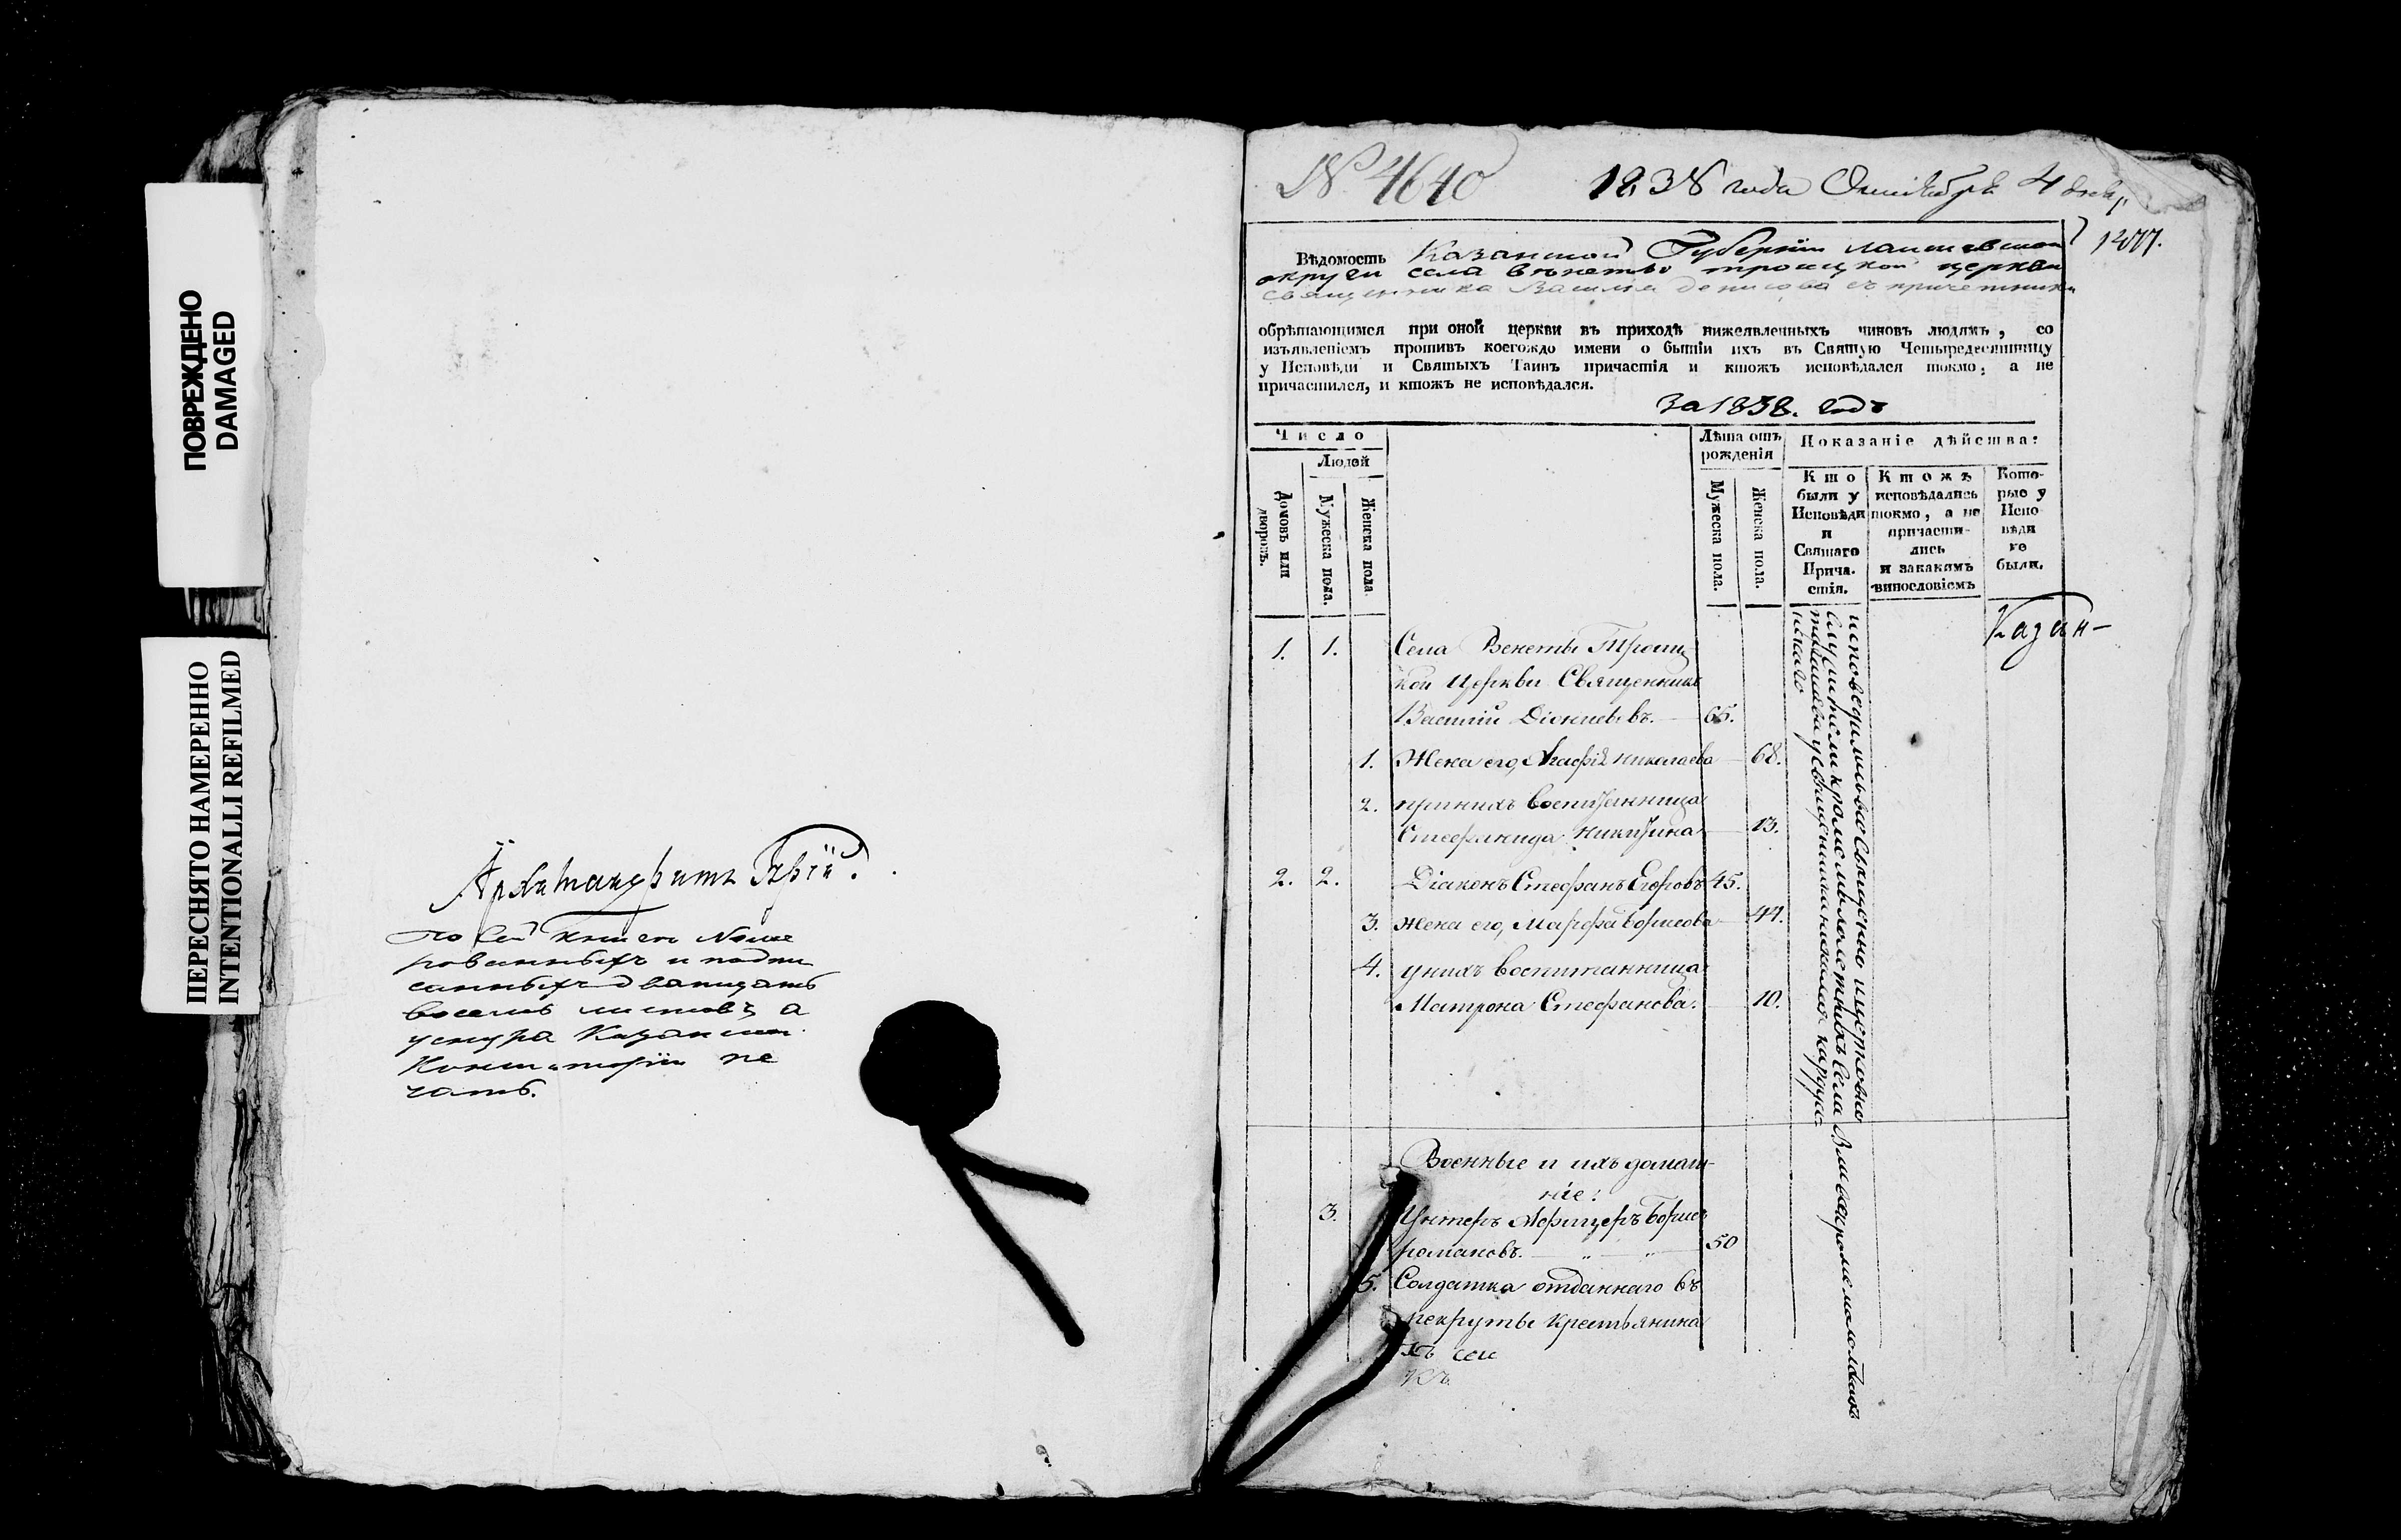 ПОВРЕЖДЕНО
DAMAGED
ПЕРЕСНЯТО НАМЕРЕННО
INTENTIONALLI REFILMED
Архимандритъ
По сей книге Номе
рованныхъ и подпи
санныхъ двадцать
восемь листовъ а
уснура Казанской
Консисторіи пе
чать.
№ 4640
1838 года Октября 4 дня
1277.
Вѣдомость Казанской Губерніи лаишевской
округи села Венеты троицкой церкви
священника Василия денисова съ причетники
обрѣтающимся при оной церкви въ приходѣ нижеявленныхъ чиновъ людямъ, со
изъявленіемъ противъ коегождо имени о бытіи ихъ въ Святую Четыредесятницу
у Исповѣди и Святыхъ Таинъ причастія и ктожъ исповѣдался токмо, а не
причастился, и ктожъ не исповѣдался.
За 1838. годъ
Число
Людей
Домовъ или дворовъ.
Мужеска пола.
Женска пола.
Лѣта отъ рожденія
Мужеска пола.
Женска пола.
Показаніе дѣйства:
Кто были у Исповѣди и Святаго Прича-стія.
Ктожъ исповѣдались токмо, а не причасти-лись и закакимъ винословіемъ
Кото-рые у Испо-вѣди не были.
Казан-
1. 1. Села Венеты Троиц-
кой Церкви Священникъ
Василій Діонисіевъ. 65.
1. Жена его, Агафія николаева 68.
2. принихъ воспитанница
Стефанида никитина 13.
2. 2. Діаконъ Стефанъ Егоровъ 45.
3. Жена его, Марфа борисова 44.
4. унихъ воспитанница
Матрона Стефанова. 10.
Военные и ихъ домаш-
ніе:
3. Унтеръ Афицеръ борисъ
романовъ. 50
5. Солдатка отданнаго въ
рекруты крестьянина
къ сей
къ